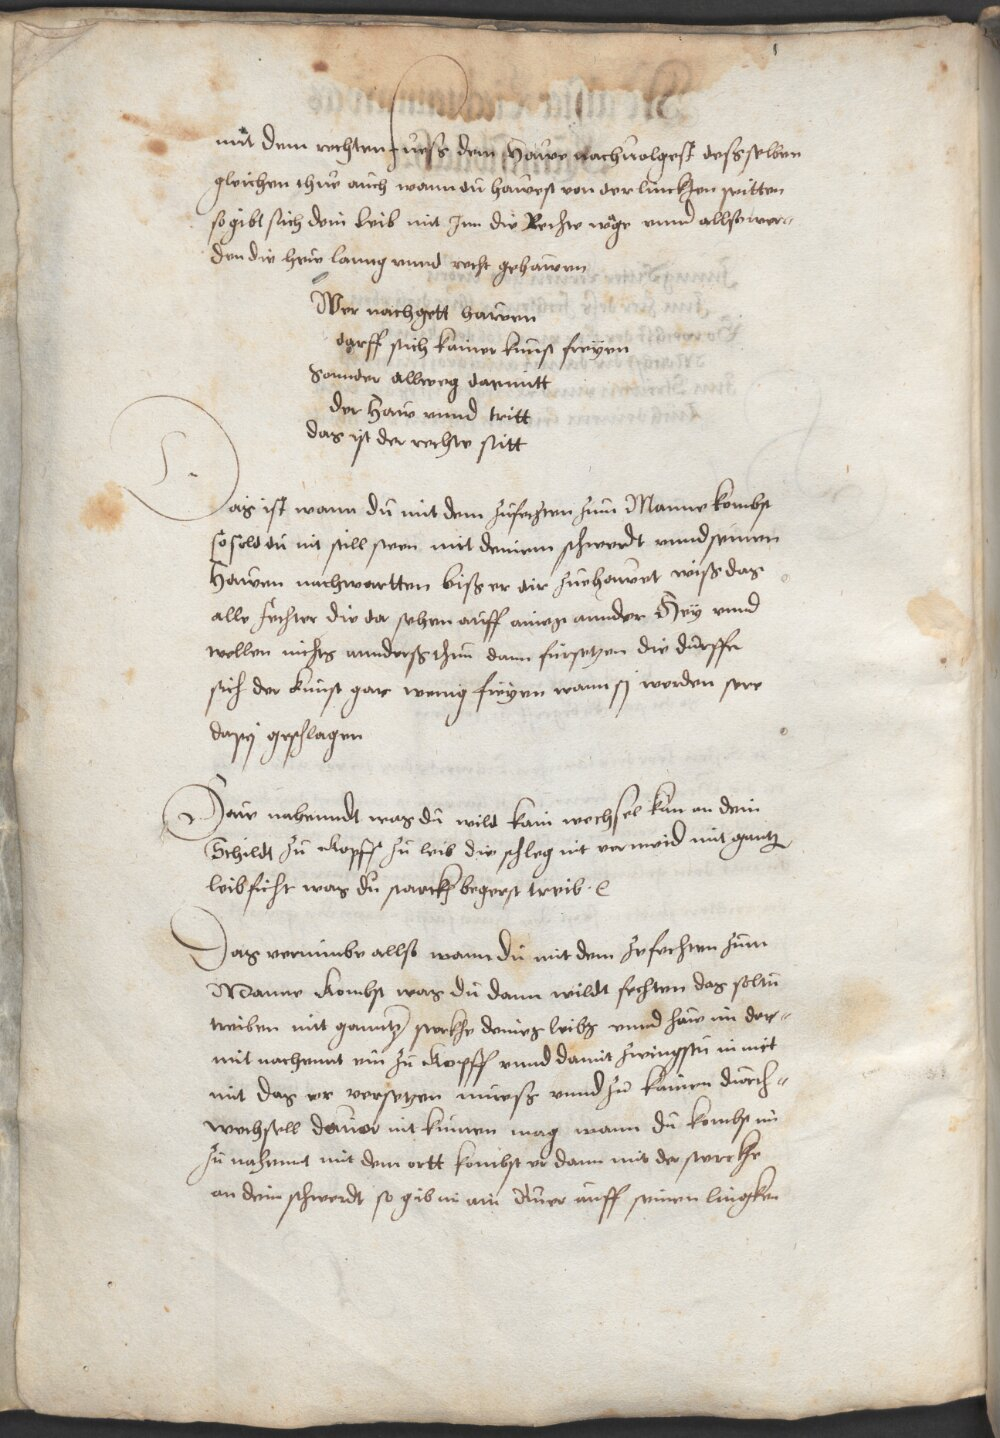 mit dem rechten fuess dem Hawe nachuolgest dessselben
gleichen thue auch wann du hawest von der linckhen seitten
so gibt sich dein leib mit Inn die Rechte wage vnnd allso wer-
den die hew lanng vnnd recht gehawen
Wer nachgett hawen
darff sich kainer kunst frewen
Sonnder allweg darmitt
der Haw vnnd tritt
das ist der rechte sitt
Das ist wann du mit dem zufechten zum Manne kombst
so sold du nit still steen mit deinem schwerdt vnnd seinen
Hawen nachwartten biss er dir zuehawet wiss das
alle fechter die da sehen auff aines annder Hew vnnd
wellen nichts annderss thun dann fürsetzen die durffen
sich der kunst gar wenig frewen wann sy werden sere
dapey geschlagen
Haw nahenndt was du wild kain wechsel kum an dein
Schildt zu kopff zu leib die schleg nit vermeid mit gantz
leib ficht was du starck begerst treib
Das vernimbe allso wann du mit dem zefechten zum
Manne kombst was du dann wildt fechten das soltu
treiben mit ganntz sterckhe deines leibs vnnd haw im dar-
mit nachennt ein zu kopff vnnd damit zwingstu in mit
mit das er versetzen muess vnnd zu kainen durch-
wechsell dauor nit kumen mag wann du kombst im
zu nahennt mit dem ortt kombst er dann mit der sterckhe
an dein schwerdt so gib im ain zwer auff seinen lingken